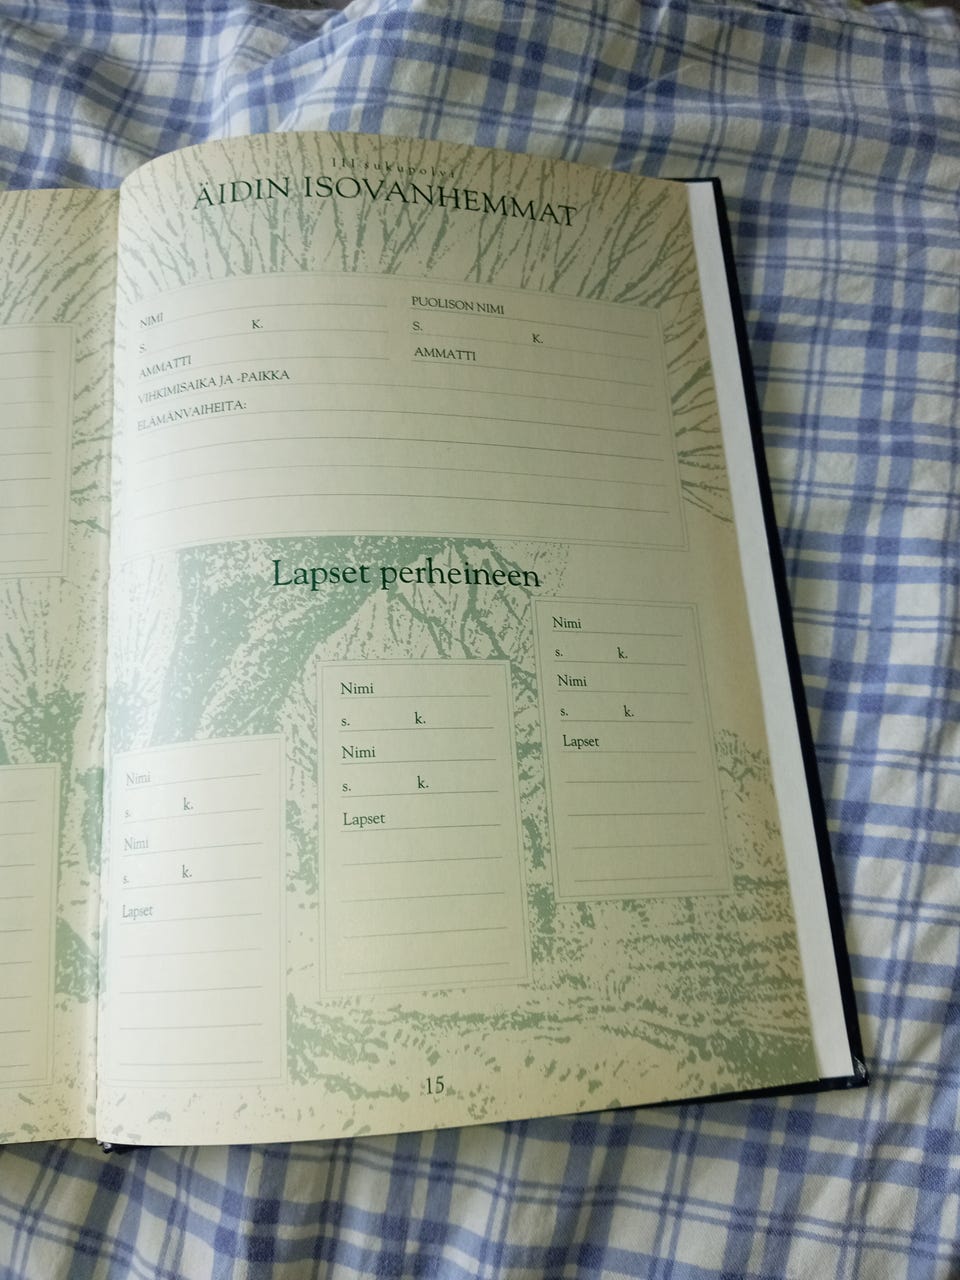 III sukupolvi
ÄIDIN ISOVANHEMMAT
NIMI
S. K.
AMMATTI
PUOLISON NIMI
S. K.
AMMATTI
VIHKIMISAIKA JA -PAIKKA
ELÄMÄNVAIHEITA:
Lapset perheineen
Nimi
s. k.
Nimi
s. k.
Lapset
Nimi
s. k.
Nimi
s. k.
Lapset
Nimi
s. k.
Nimi
s. k.
Lapset
15